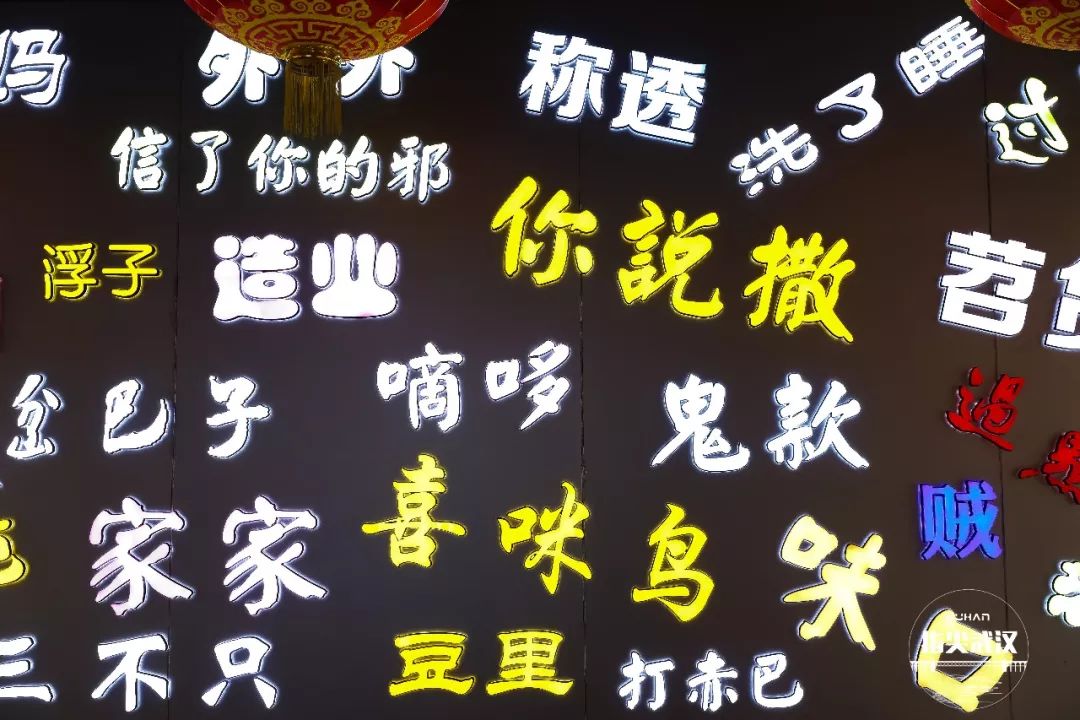 称透
洗了睡
过
信了你的邪
浮子
造业
你説撒
苕
岔巴子
嘀哆
鬼款
過
家家
喜咪
鸟
贼
三不只
豆里
打赤巴
WUHAN
指尖武汉